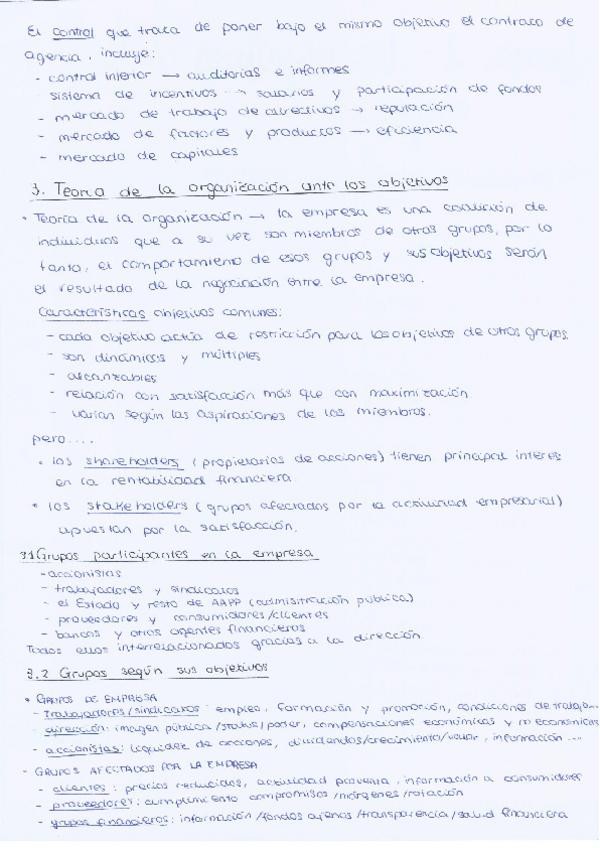 El control que trata de poner bajo el mismo objetivo el contrato de
agencia, incluye:
- control interior → auditorias e informes
sistema de incentivos → salarios y participación de fondos
- mercado de trabajo de directivos → reputación
- mercado de factores y productos → eficiencia
- mercado de capitales
3. Teoria de la organización ante los objetivos
• Teoría de la organización → la empresa es una coalición de
individuos que a su vez son miembros de otros grupos, por lo
tanto, el comportamiento de esos grupos y sus objetivos serán
el resultado de la negociación entre la empresa.
Características objetivos comunes:
- cada objetivo actúa de restricción para los objetivos de otros grupos.
- son dinámicos y múltiples
- alcanzables
- relación con satisfacción más que con maximización
- varían según las aspiraciones de los miembros.
pero....
• los shareholders (propietarios de acciones) tienen principal interés
en la rentabilidad financiera
• los stakeholders (grupos afectados por la actividad empresarial)
apuestan por la satisfacción.
3.1 Grupos participantes en la empresa
- accionistas
- trabajadores y sindicatos
- el Estado y resto de AAPP (administración pública)
- proveedores y consumidores/clientes
- bancos y otros agentes financieros
Todos ellos interrelacionados gracias a la dirección
3.2 Grupos según sus objetivos
• GRUPOS DE EMPRESA
- Trabajadores/sindicatos: empleo, formación y promoción, condiciones de trabajo...
- dirección: imagen pública/status/poder, compensaciones económicas y no económicas
- accionistas: liquidez de acciones, dividendos/crecimiento/valor, información ...
• GRUPOS AFECTADOS POR LA EMPRESA
- clientes: precios reducidos, actividad, información a consumidores
- proveedores: cumplimiento compromisos/márgenes/rotación
- grupos financieros: información/fondos ajenos/transparencia/salud financiera